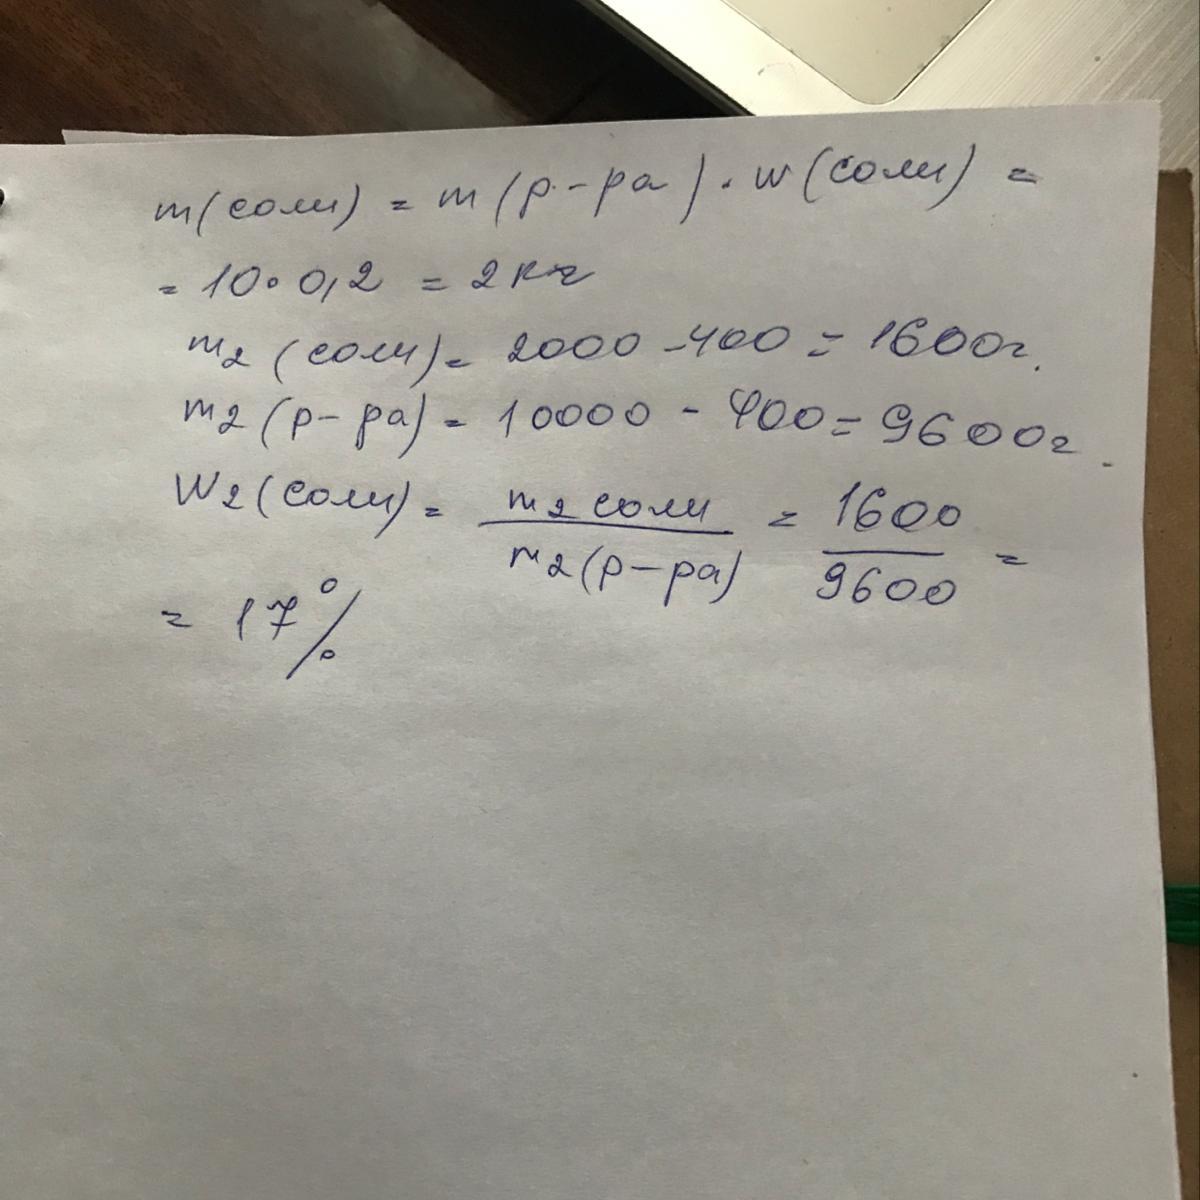 m(соли) = m(р-ра) · w(соли) =
= 10 · 0,2 = 2 кг
m2 (соли) = 2000 - 400 = 1600г.
m2 (р-ра) = 10000 - 400 = 9600г.
W2 (соли) = m2 соли / m2 (р-ра) = 1600 / 9600 =
= 17%